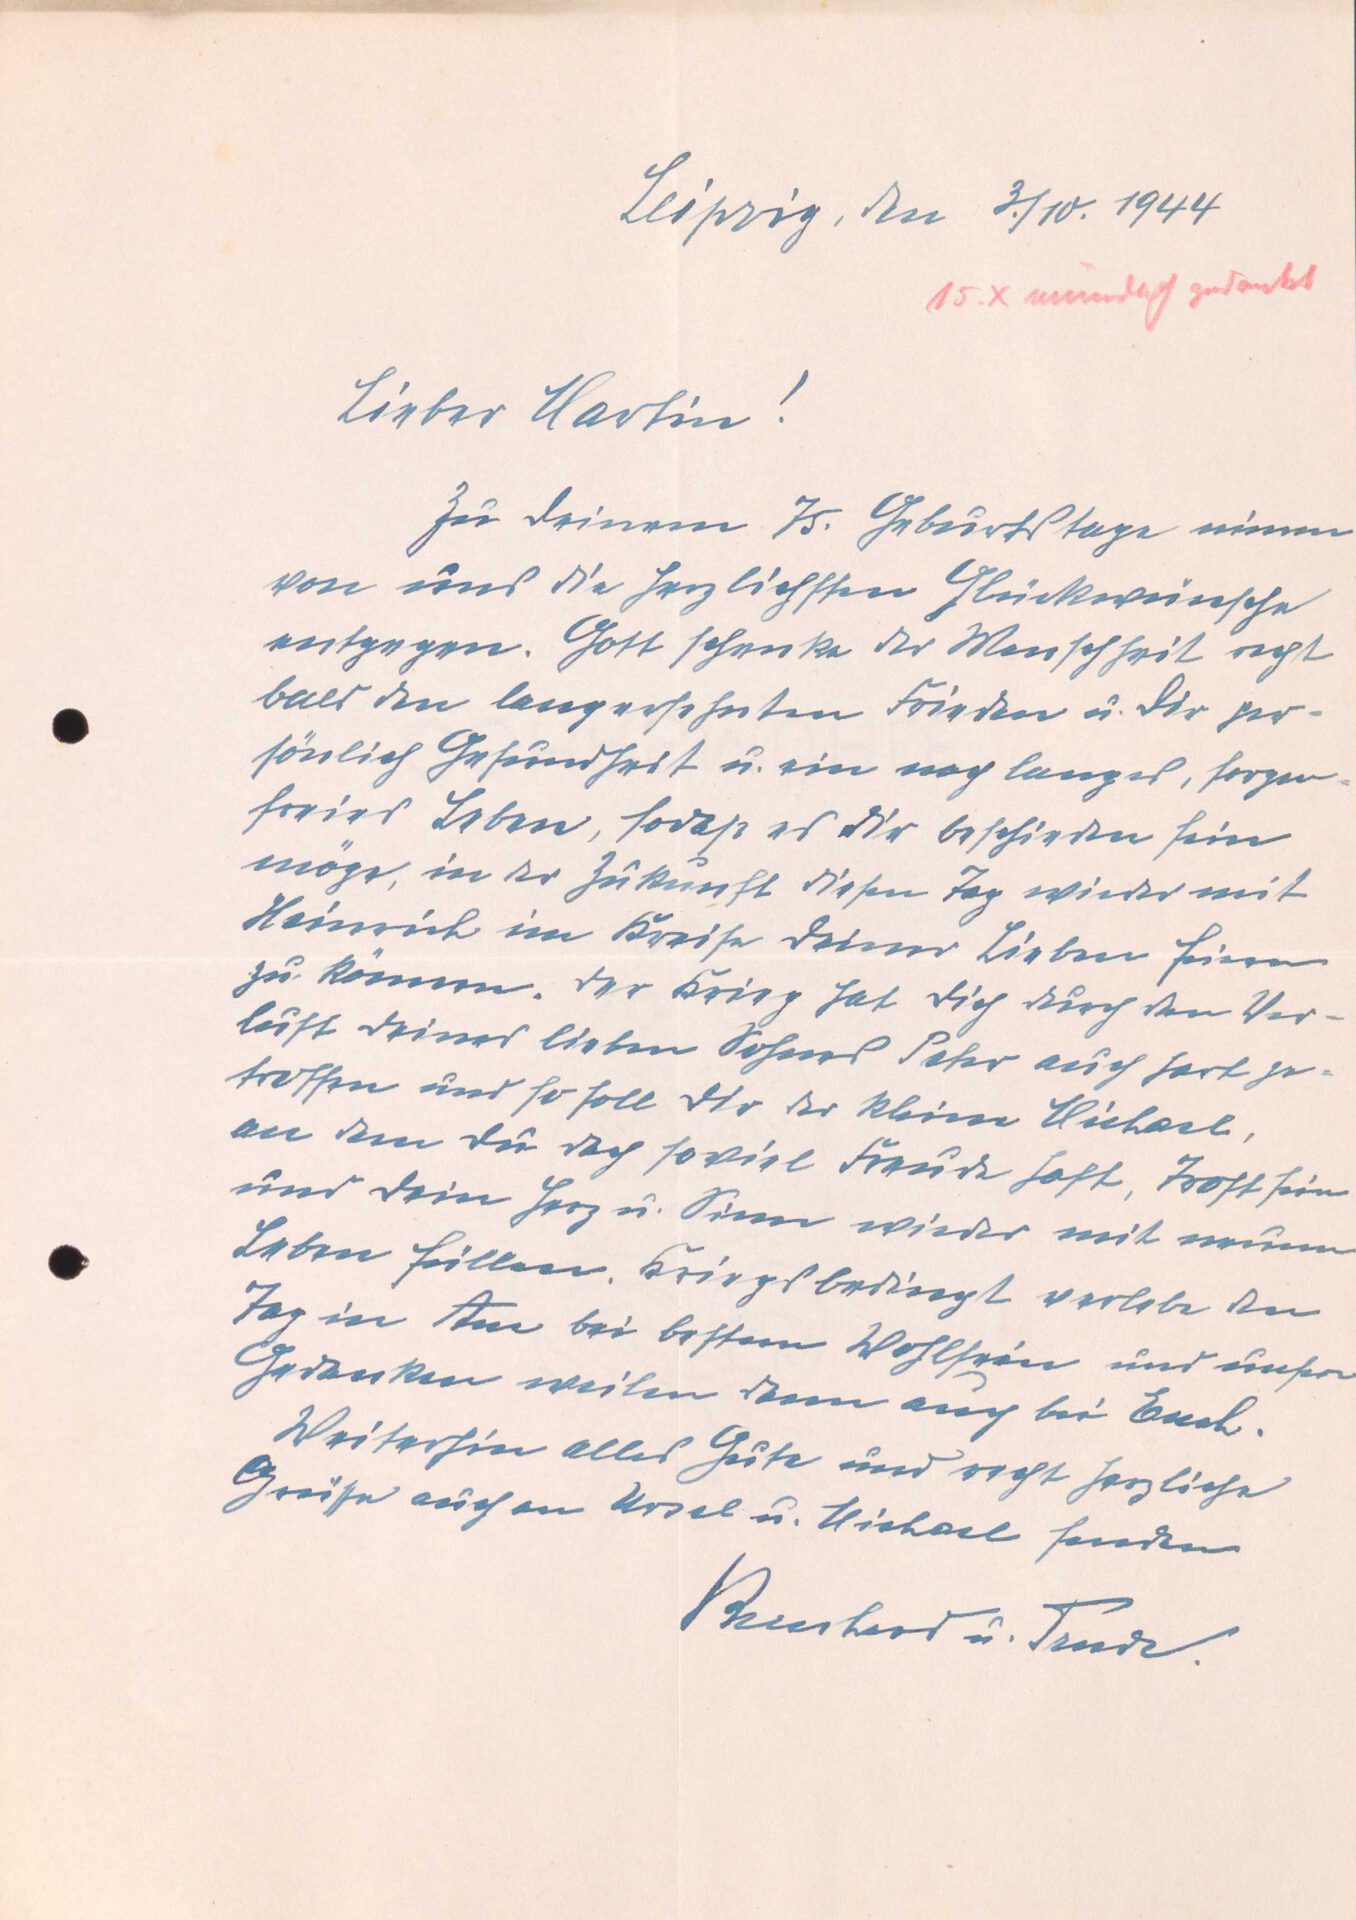 Leipzig, den 3./10. 1944
15.X mündlich gedankt
Lieber Martin!
Zu Deinem 75. Geburtstage nimm
von uns die herzlichsten Glückwünsche
entgegen. Gott schenke der Menschheit recht
bald den langersehnten Frieden u. Dir per-
sönlich Gesundheit u. ein noch langes, sorgen-
freies Leben, sodaß es dir beschieden sein
möge, in der Zukunft diesen Tag wieder mit
Heinrich im Kreise Deiner Lieben feiern
zu können. Der Krieg hat Dich durch den Ver-
lust Deines lieben Sohnes Peter auch hart ge-
troffen und so soll Dir der kleine Michael,
an dem Du doch soviel Freude hast, Trost sein
und Dein Herz u. Sinn wieder mit neuem
Leben füllen. Kriegsbedingt verlebe den
Tag in bei bestem Wohlsein und unsere
Gedanken weilen dann auch bei Euch.
Weiterhin alles Gute und recht herzliche
Grüße auch an Ursel u. Michael senden
Bernhard u. Trude.